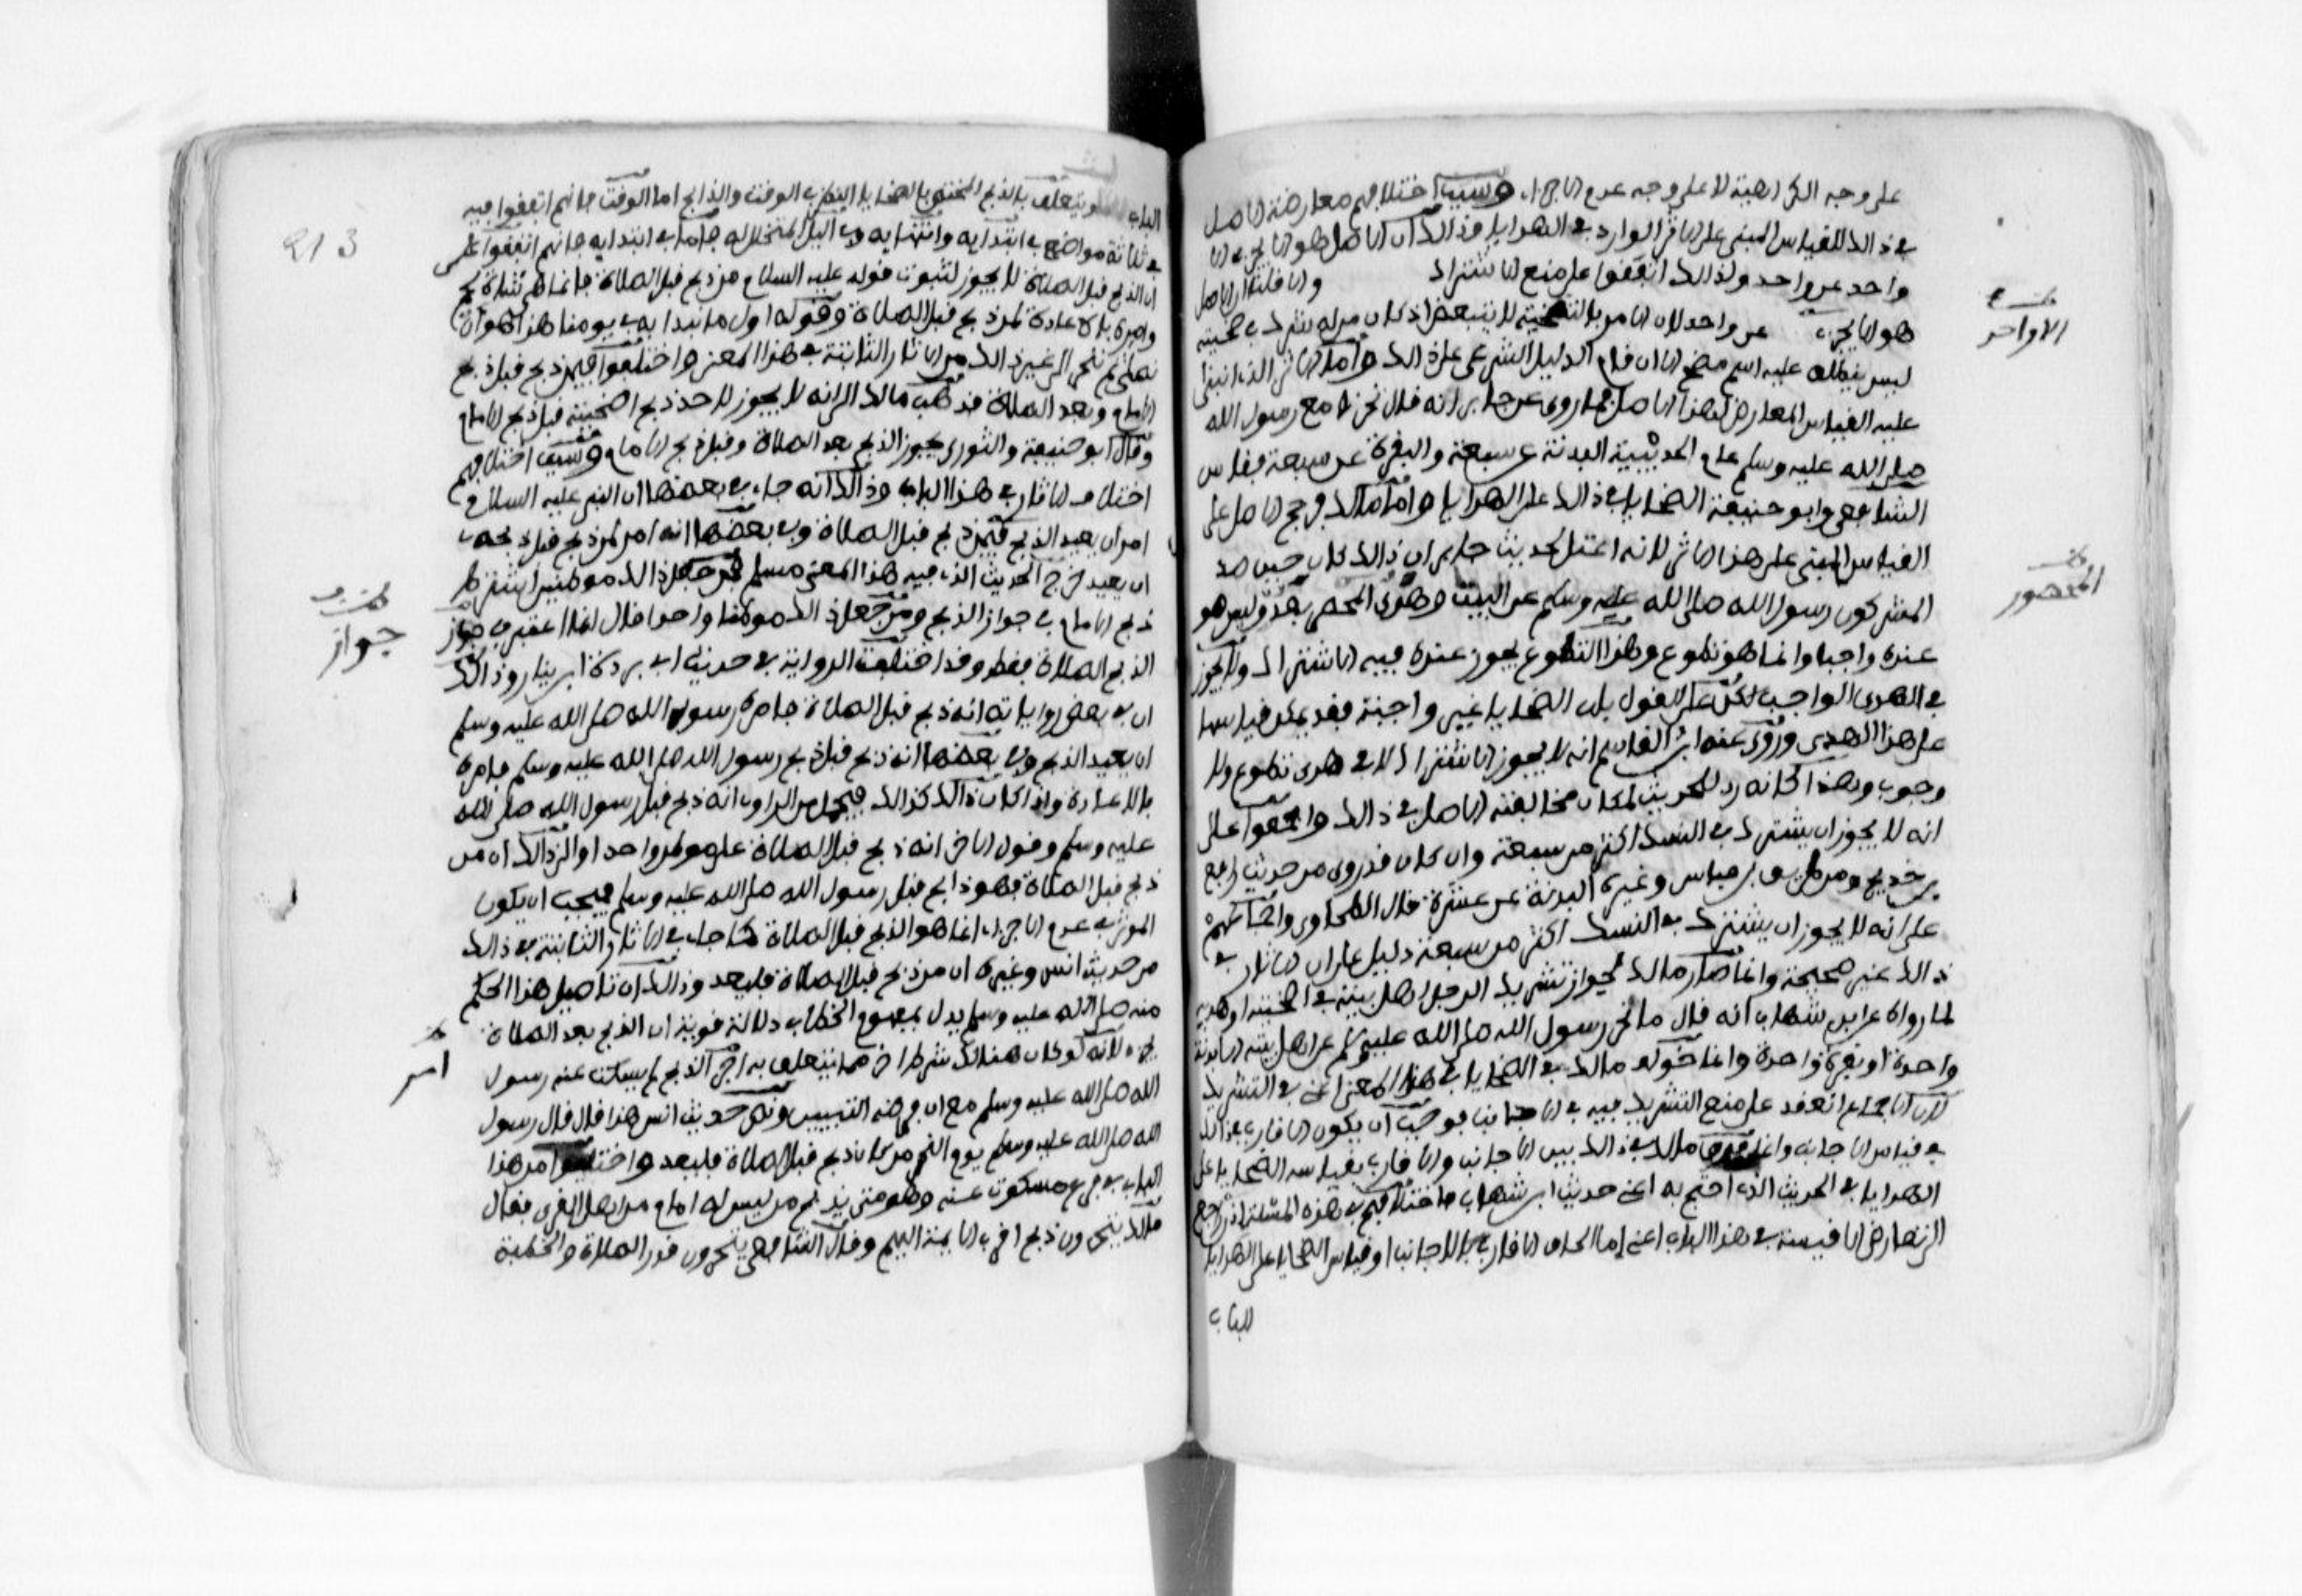 على وجه الكراهية لا على وجه عدم الاجزاء وسبب اختلافهم معارضة الاصل
في ذالك للقياس المبني على الاثر الوارد في الهدايا وذالك ان الاصل هو الا يجزي الا
واحد عن واحد ولذالك اتفقوا على منع الاشتراك وانا قلنا ان الاصل
هو الا يجزي عن واحد لان الامر بالتضحية لا يتبعض اذ كان من له شرك في ضحية
ليس ينطلق عليه اسم مضح الا ان قام الدليل الشرعي على ذالك واما الاثر الذي انبنا
عليه القياس المعارض لهذا الاصل فما روي عن جابر انه قال نحرنا مع رسول الله
صلى الله عليه وسلم عام الحديبية البدنة عن سبعة والبقرة عن سبعة فقاس
الشافعي وابو حنيفة الضحايا في ذالك على الهدايا واما مالك فرجح الاصل على
القياس المبني على هذا الاثر لانه اعتل لحديث جابر ان ذالك كان حين صد
المشركون رسول الله صلى الله عليه وسلم عن البيت وهدي المحصر بعد وليس هو
عنده واجبا وانما هو تطوع وهذا التطوع يجوز عنده فيه الاشتراك ولا يجوز
في الهدي الواجب لكن على القول بان الضحايا غير واجبة فقد يمكن قياسها
على هذا الهدي وروى عنه ابن القاسم انه لا يجوز الاشتراك لا في هدي تطوع ولا
وجوب وهذا كانه رد للحديث لمكان مخالفته الاصل في ذالك واجمعوا على
انه لا يجوز ان يشترك في النسك اكثر من سبعة وان كان قد روي من حديث رافع
بن خديج ومن طريق بن عباس وغيره البدنة عن عشرة قال الطحاوي واجماعهم
على انه لا يجوز ان يشترك في النسك اكثر من سبعة دليل على ان الاثار في
ذالك غير صحيحة وانما صار مالك لجواز تشريك الرجل اهل بيته في اضحيته او هديه
لما رواه عن ابن شهاب انه قال ما نحر رسول الله صلى الله عليه وسلم عن اهل بيته الا بدنة
واحدة او بقرة واحدة وانما خولف مالك في الضحايا في هذا المعنى اعني في التشريك
لان الاجماع انعقد على منع التشريك فيه في الاجانب فوجب ان يكون الاقارب في ذالك
في قياس الاجانب وانما فرق مالك في ذالك بين الاجانب والاقارب لقياسه الضحايا على
الهدايا في الحديث الذي احتج به اعني حديث ابن شهاب فاختلافهم في هذه المسئلة اذا رجع
الى تعارض الاقيسة في هذا الباب اعني اما الحاق الاقارب بالاجانب او قياس الضحايا على الهدايا
الباب
الاواخر
المحصور
213
الباب ويتعلق بالذبح المختص بالضحايا النظر في الوقت والذابح اما الوقت فانهم اتفقوا فيه
في ثلاثة مواضع في ابتدايه وانتهايه وفي الليالي المتخللة له فاما في ابتدايه فانهم اتفقوا على
ان الذبح قبل الصلاة لا يجوز لثبوت قوله عليه السلام من ذبح قبل الصلاة فانما هي شاة لحم
وامره بالاعادة لمن ذبح قبل الصلاة وقوله اول ما نبدا به في يومنا هذا هو ان
نصلي ثم ننحر الى غير ذالك من الاثار الثابتة في هذا المعنى واختلفوا فيمن ذبح قبل ذبح
الامام وبعد الصلاة فذهب مالك الى انه لا يجوز لاحد ذبح اضحيته قبل ذبح الامام
وقال ابو حنيفة والثوري يجوز الذبح بعد الصلاة وقبل ذبح الامام وسبب اختلافهم
اختلاف الاثار في هذا الباب وذالك انه جاء في بعضها ان النبي عليه السلام
امر ان يعيد الذبح فيمن ذبح قبل الصلاة وفي بعضها انه امر لمن ذبح قبل ذبحه
ان يعيد خرج الحديث الذي فيه هذا المعنى مسلم فمن جعل ذالك موطنين اشترط
ذبح الامام في جواز الذبح ومن جعل ذالك موطنا واحدا قال انما اعتبر في جواز
الذبح الصلاة فقط وقد اختلفت الرواية في حديث ابي بردة ابن ينار وذالك
ان في بعض رواياته انه ذبح قبل الصلاة فامره رسول الله صلى الله عليه وسلم
ان يعيد الذبح وفي بعضها انه ذبح قبل ذبح رسول الله صلى الله عليه وسلم فامره
بالاعادة واذا كان ذالك كذالك فيحمل من الراوي انه ذبح قبل رسول الله صلى الله
عليه وسلم وقول الاخر انه ذبح قبل الصلاة على موطن واحد اولى وذالك ان من
ذبح قبل الصلاة فهو ذابح قبل رسول الله صلى الله عليه وسلم فيجب ان يكون
الموثر في عدم الاجزاء انما هو الذبح قبل الصلاة كما جاء في الاثار الثابتة في ذالك
من حديث انس وغيره ان من ذبح قبل الصلاة فليعد وذالك ان تاصيل هذا الحكم
منه صلى الله عليه وسلم يدل بمفهوم الخطاب دلالة قوية ان الذبح بعد الصلاة
يجزء لانه لو كان هنالك شرط اخر مما يتعلق به اجزاء الذبح لم يسكت عنه رسول
الله صلى الله عليه وسلم مع ان فرضه التبيين ونص حديث انس هذا قال قال رسول
الله صلى الله عليه وسلم يوم النحر من كان ذبح قبل الصلاة فليعد واختلفوا من هذا
الباب في فرع مسكوت عنه وهو متى يذبح من ليس له امام من اهل القرى فقال
مالك يتحرون ذبح اقرب الايمة اليهم وقال الشافعي يتحرون قدر الصلاة والخطبة
جواز
امر